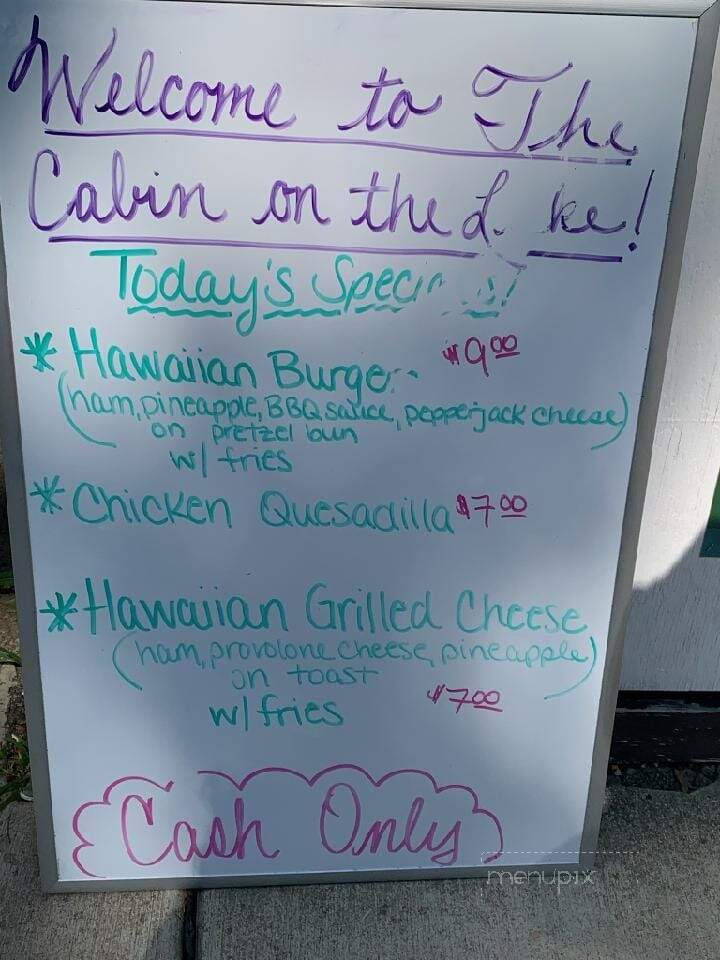 Welcome to The
Cabin on the L ke!
Today's Speci s!
* Hawaiian Burger $9.00
(ham, pineapple, BBQ sauce, pepperjack cheese)
on pretzel bun
w/ fries
* Chicken Quesadilla $7.00
* Hawaiian Grilled Cheese
(ham, provolone cheese, pineapple)
on toast
w/ fries $7.00
Cash Only
menupix